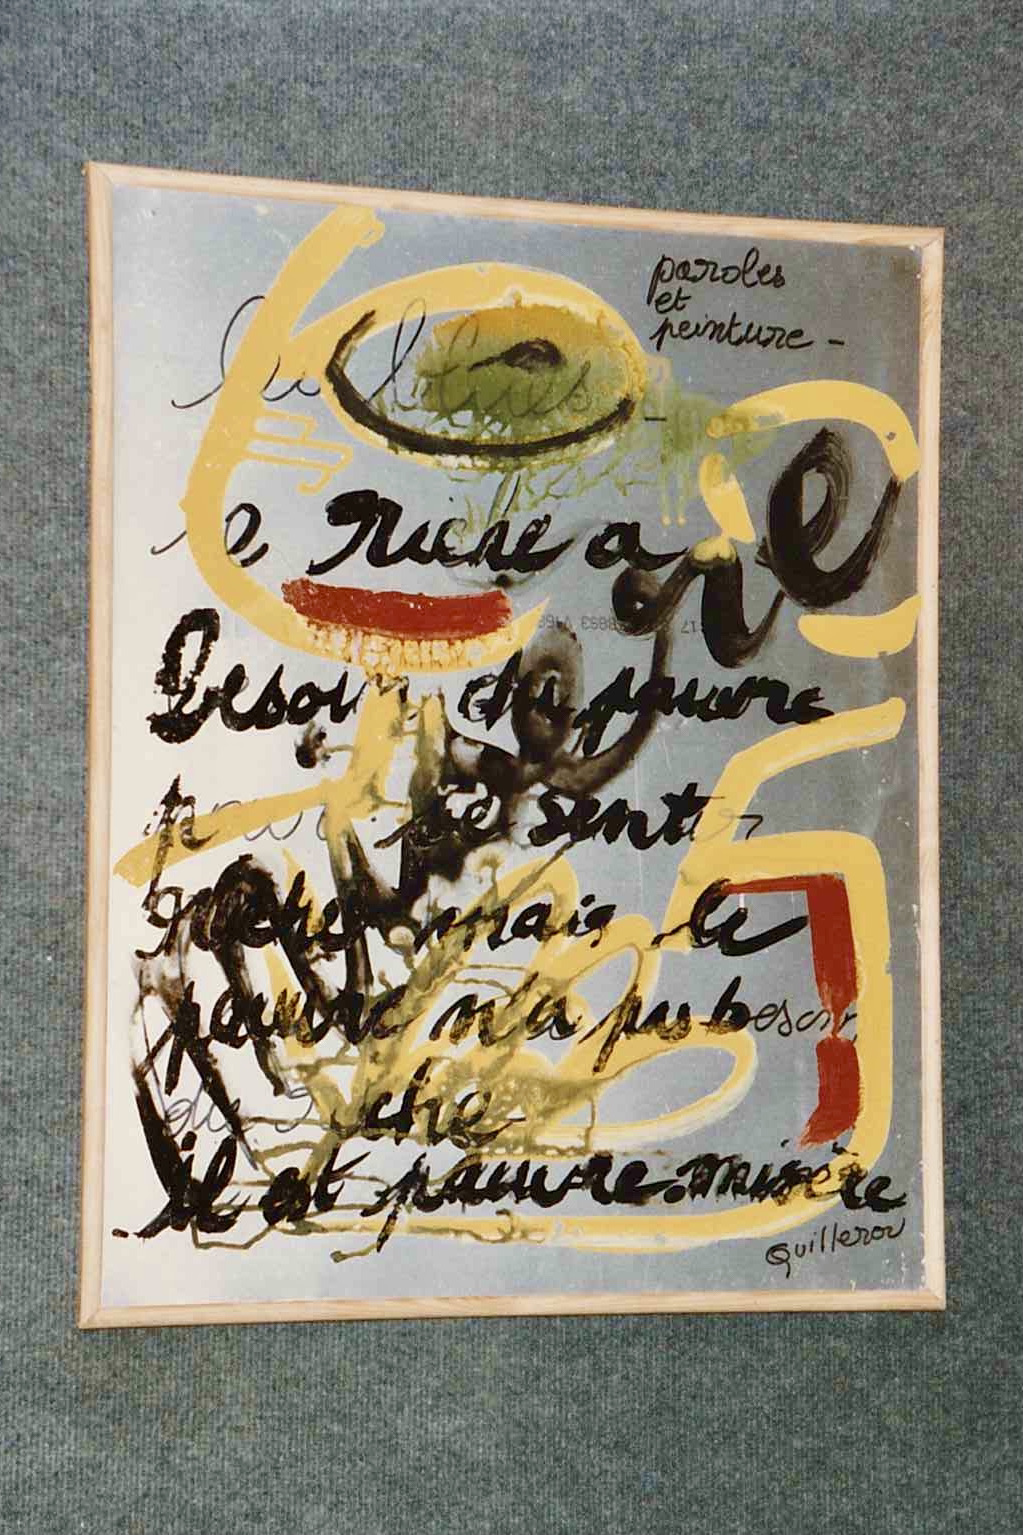 paroles
et
peinture -
le riche a
besoin du pauvre
pour se sentir
riche mais le
pauvre n'a pas besoin
du riche
il est pauvre. misère
Quillerou